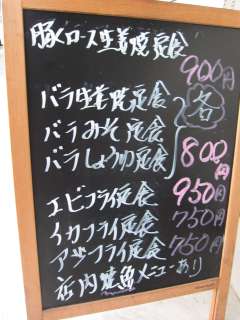 豚ロース生姜焼定食
900円
バラ生姜焼定食
バラみそ定食
バラしょうゆ定食
各
800円
エビフライ定食
950円
イカフライ定食
750円
アジフライ定食
750円
店内焼魚メニューあり